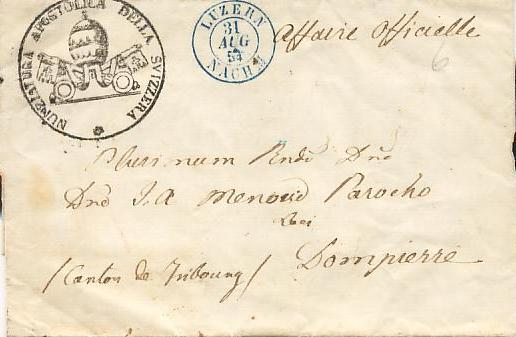 NUNZIATURA APOSTOLICA DELLA SVIZZERA
LUZERN
31
AUG
54
NACHM
Affaire Officielle
6
Plurimum Rndo Dno
Dno J. A Menoud Parocho
Dompierre
/Canton de Fribourg/